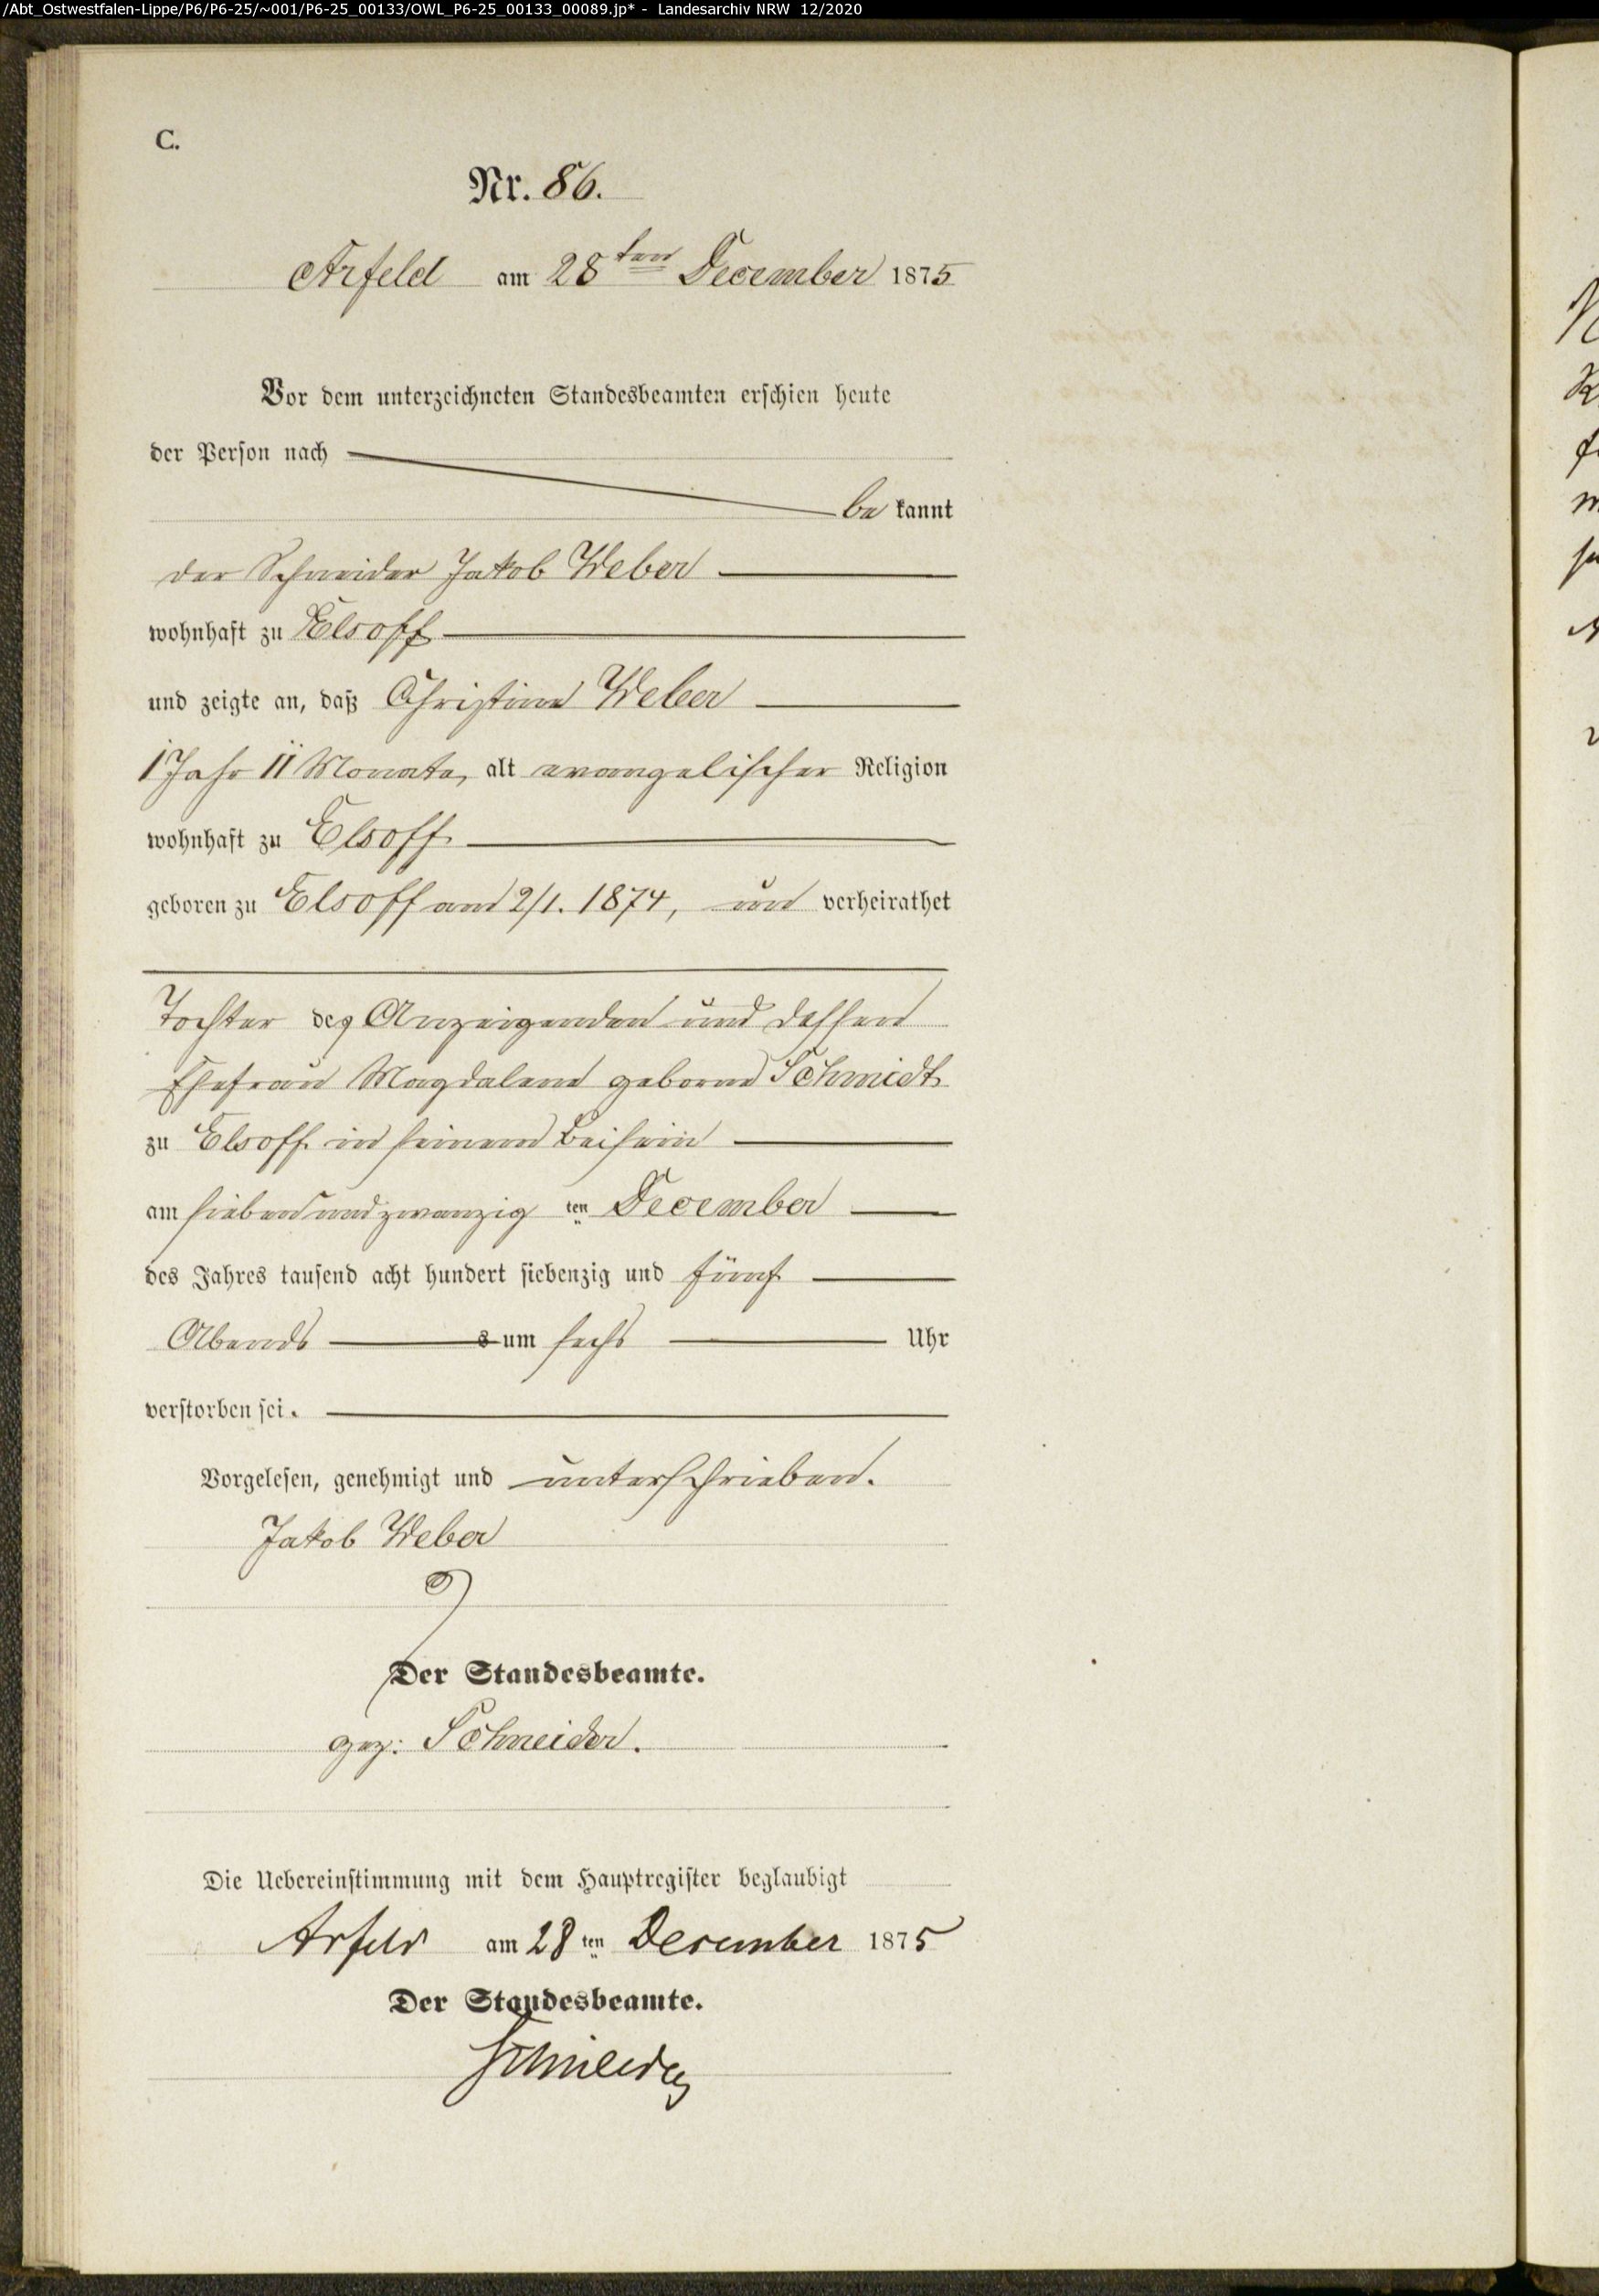 /Abt_Ostwestfalen-Lippe/P6/P6-25/~001/P6-25_00133/OWL_P6-25_00133_00089.jp* - Landesarchiv NRW 12/2020
C.
Nr. 86.
Arfeld am 28ten December 1875
Vor dem unterzeichneten Standesbeamten erschien heute
der Person nach
be kannt
der Schneider Jakob Weber
wohnhaft zu Elsoff
und zeigte an, daß Christine Weber
1 Jahr 11 Monate, alt evangelischer Religion
wohnhaft zu Elsoff
geboren zu Elsoff am 2/1. 1874, un verheirathet
Tochter des Anzeigenden und dessen
Ehefrau Magdalene geborne Schmidt
zu Elsoff in seinem Beisein
am siebenundzwanzig ten December
des Jahres tausend acht hundert siebenzig und fünf
Abends s um sechs Uhr
verstorben sei.
Vorgelesen, genehmigt und unterschrieben.
Jakob Weber
Der Standesbeamte.
gez: Schneider.
Die Uebereinstimmung mit dem Hauptregister beglaubigt
Arfeld am 28 ten December 1875
Der Standesbeamte.
Schneider